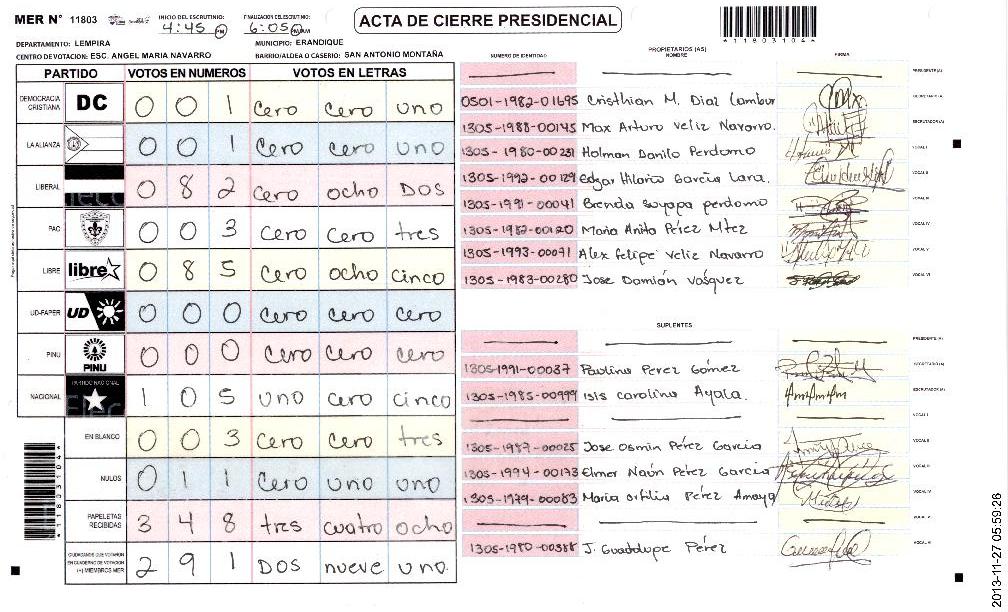 MER N° 11803 INICIO DEL ESCRUTINIO: 4:45 PM FINALIZACION DEL ESCRUTINIO: 6:05
ACTA DE CIERRE PRESIDENCIAL
11803104
DEPARTAMENTO: LEMPIRA MUNICIPIO: ERANDIQUE
CENTRO DE VOTACION: ESC. ANGEL MARIA NAVARRO BARRIO/ALDEA O CASERIO: SAN ANTONIO MONTAÑA
PARTIDO VOTOS EN NUMEROS VOTOS EN LETRAS
DEMOCRACIA CRISTIANA DC 0 0 1 cero cero uno
LA ALIANZA 0 0 1 cero cero uno
LIBERAL 0 8 2 cero ocho DOS
PAC 0 0 3 cero cero tres
LIBRE libre 0 8 5 cero ocho cinco
UD-FAPER UD 0 0 0 cero cero cero
PINU PINU 0 0 0 cero cero cero
NACIONAL PARTIDO NACIONAL 1 0 5 uno cero cinco
EN BLANCO 0 0 3 cero cero tres
NULOS 0 1 1 cero uno uno
PAPELETAS RECIBIDAS 3 4 8 tres cuatro ocho
CIUDADANOS QUE VOTARON EN CUADERNO DE VOTACION (+) MIEMBROS MER 2 9 1 DOS nueve uno
11803104
PROPIETARIOS (AS)
NUMERO DE IDENTIDAD NOMBRE FIRMA
PRESIDENTE (A)
0501-1982-01695 Cristhian M. Diaz SECRETARIO (A)
1305-1988-00145 Max Arturo Veliz Navarro. ESCRUTADOR (A)
1305-1980-00231 Holman Danilo Perdomo VOCAL I
1305-1992-00129 Edgar Hilario Garcia Lara. VOCAL II
1305-1991-00041 Brenda Soyapa perdomo VOCAL III
1305-1982-00120 Maria Anita Pérez Mtez VOCAL IV
1305-1993-00071 Alex felipe Veliz Navarro VOCAL V
1305-1983-00280 Jose Damián Vásquez VOCAL VI
SUPLENTES
PRESIDENTE (A)
1305-1991-00037 Paulino Perez Gómez SECRETARIO (A)
1305-1985-00999 Isis carolina Ayala. ESCRUTADOR (A)
VOCAL I
1305-1987-00025 Jose Osmin Pérez Garcia VOCAL II
1305-1994-00173 Elmer Naún Pérez Garcia VOCAL III
1305-1979-00083 Maria Orfilia Pérez Amaya VOCAL IV
VOCAL V
1305-1980-00388 J. Guadalupe Pérez VOCAL VI
2013-11-27 05:59:26